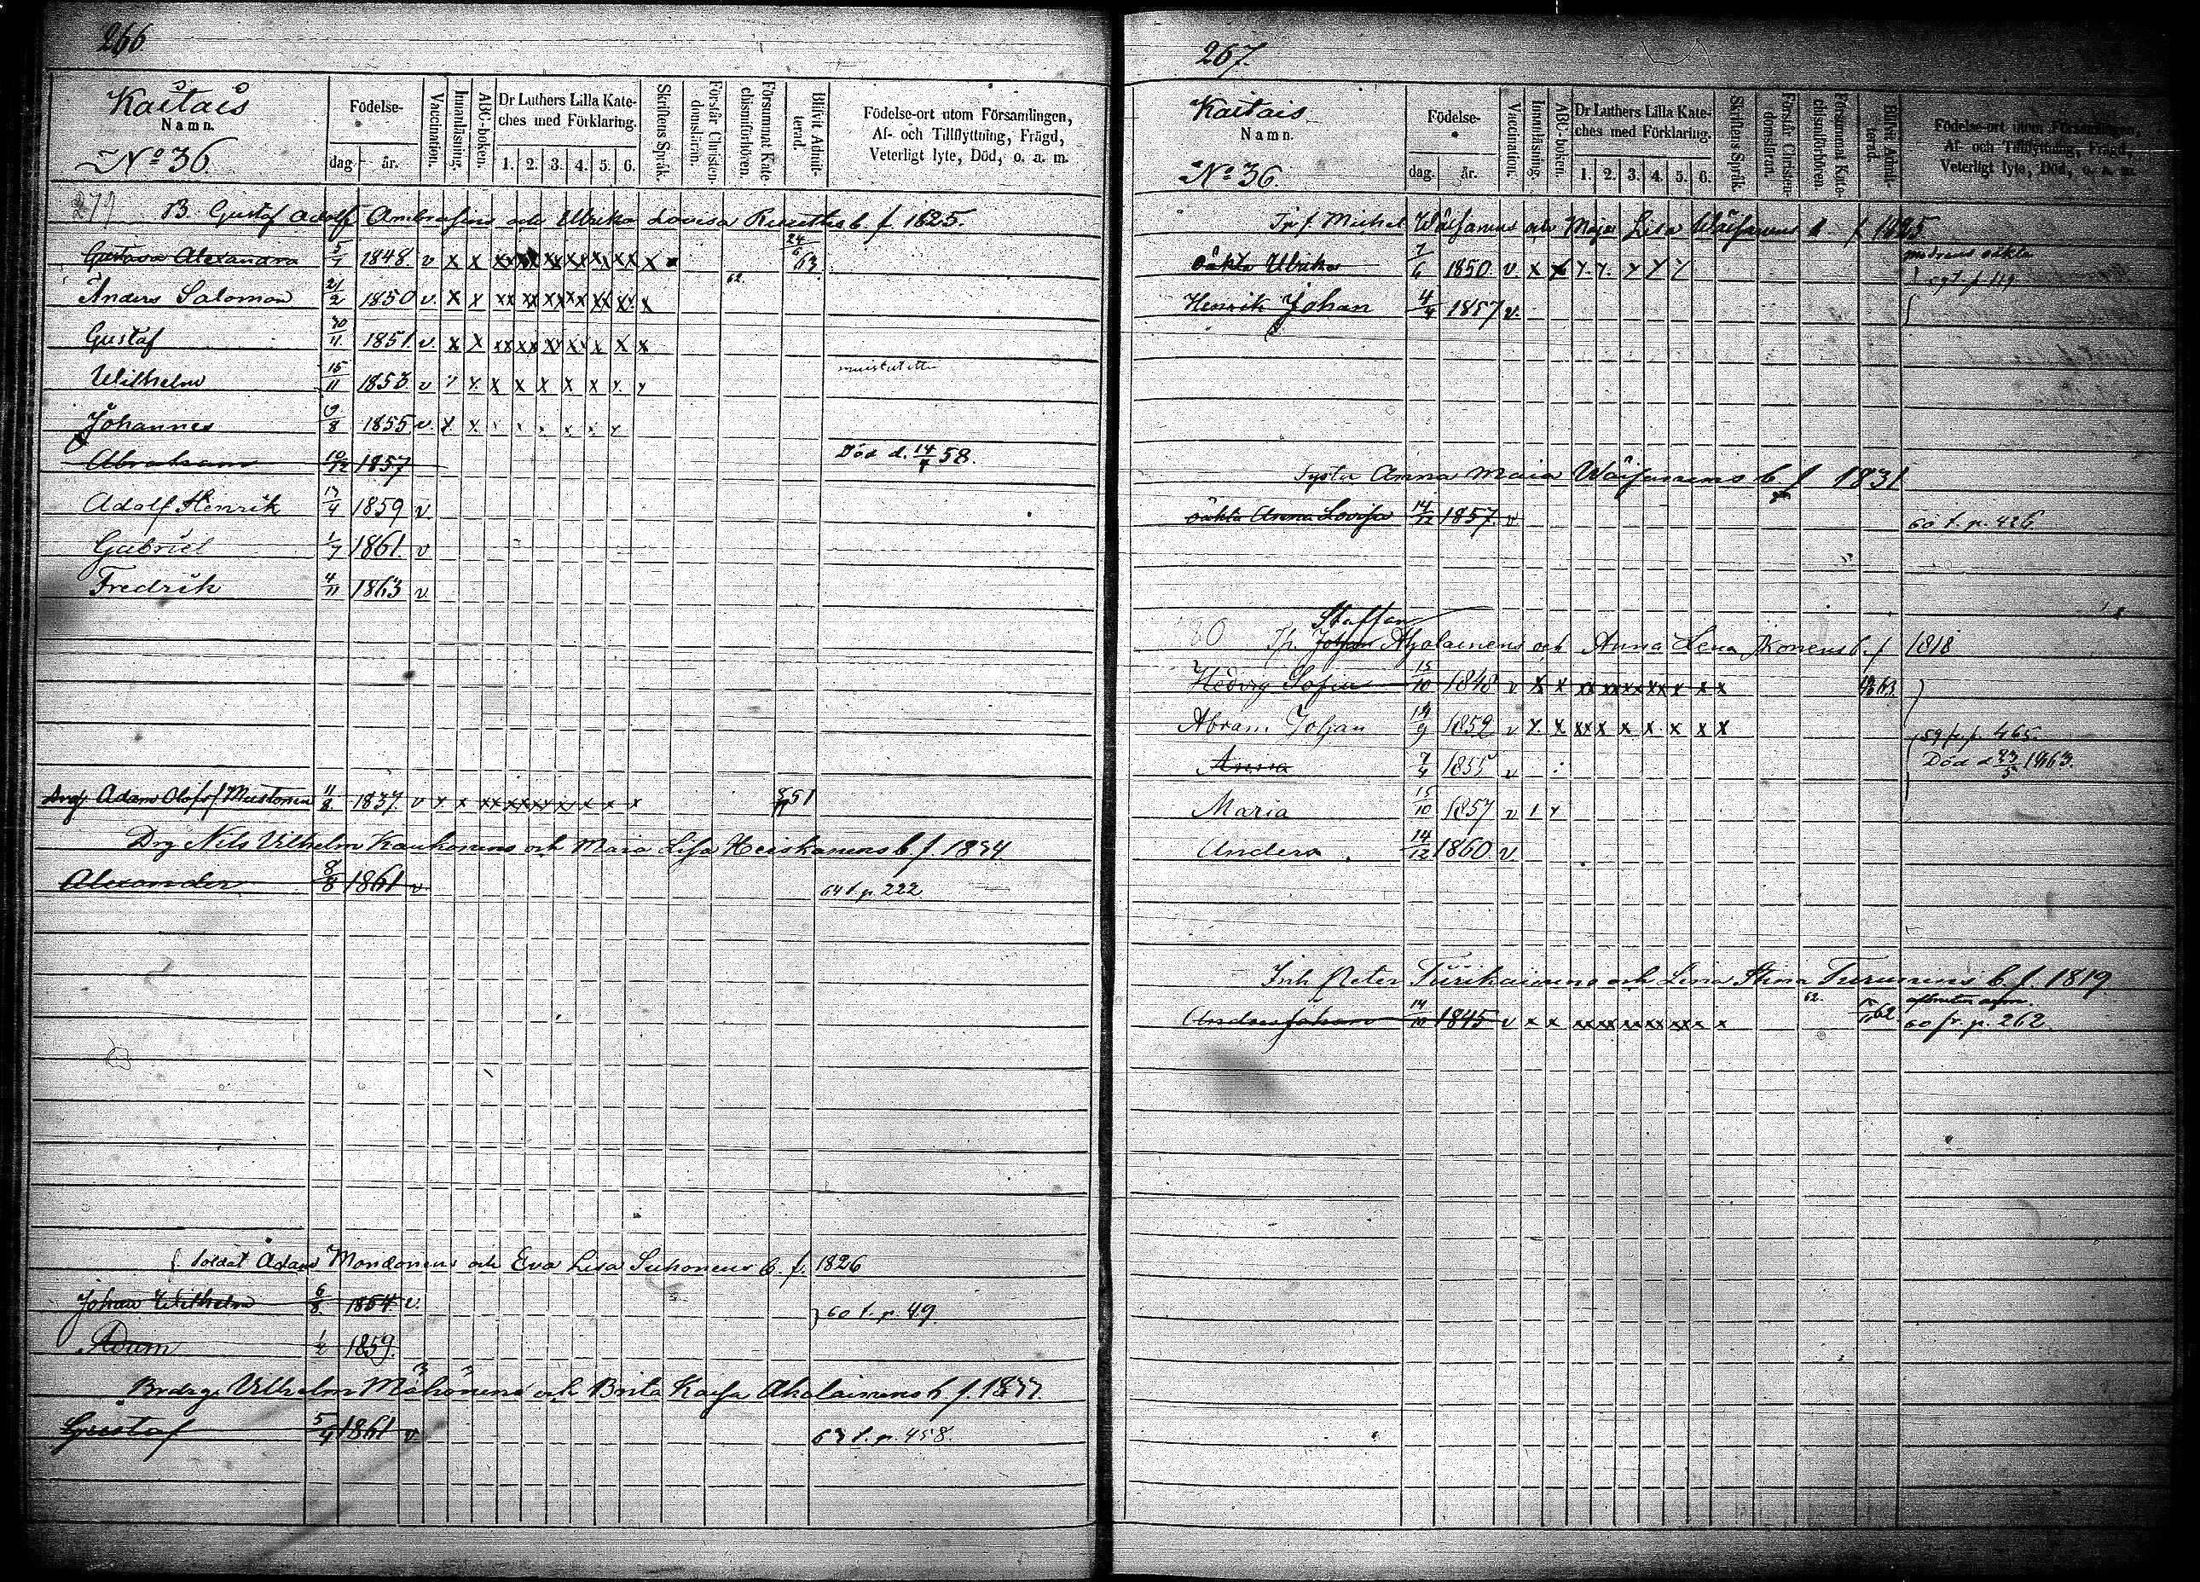 266
Kaitais
Namn.
No 36.
Födelse-
dag
år.
Vaccination.
Innanläsning.
ABC-boken.
Dr Luthers Lilla Kate-
ches med Förklaring.
1. 2. 3. 4. 5. 6.
Skriftens Språk.
Förstår Christen-
domsläran.
Försummat Kate-
chismiförhören.
Blifvit Admit-
terad.
Födelse-ort utom Församlingen,
Af- och Tillflyttning, Frägd,
Veterligt lyte, Död, o. a. m.
B. Gustaf Adolf och Ulrika Lovisa b. f. 1825.
Gustava Alexandra 5/1 1848 v x x xx xx xx xx xx xx x 24/6 63
62.
Anders Salomon 21/2 1850 v. x x xx xx xx xx xx xx x
Gustaf 30/11 1851 v. x x xx xx xx xx x x x
Wilhelm 15/11 1853 v x x x x x x x x x
Johannes 9/8 1855 v. x x x x x x x x
Abraham 10/12 1857 Död d. 14/4 58.
Adolf Henrik 17/4 1859 v
Gabriel 1/7 1861 v
Fredrik 4/11 1863 v
Adam Olofsf Mustonen 11/8 1837 v x x xx xx xx xx x x x 51
Drg Nils Vilhelm Kauhanens och Maia Lisa Heiskanens b. f. 1834.
Alexander 8/8 1861 v 64 t. p. 222
Soldat Adam Mondonens och Eva Lisa Suhonens b. f. 1826
Johan Wilhelm 6/8 1854 v. 60 t. p. 49.
Adam 1/2 1859.
Vilhelm Måhönens och Brita Kaisa Ahalainens b. f. 1837.
Gustaf 5/4 1861 v 63 t. p. 458.
267.
Kaitais
Namn.
No 36.
Födelse-
dag.
år.
Vaccination.
Innanläsning.
ABC-boken.
Dr Luthers Lilla Kate-
ches med Förklaring.
1. 2. 3. 4. 5. 6.
Skriftens Språk.
Förstår Christen-
domsläran.
Försummat Kate-
chismiförhören.
Blifvit Admit-
terad.
Födelse-ort utom Församlingen,
Af- och Tillflyttning, Frägd,
Veterligt lyte, Död, o. a. m.
Michel Wäisänens och Maja Lisa Wäisänens f 1825
oäkta Ulrika 7/6 1850 v x x x x x x x modrens oäkta
Henrik Johan 4/4 1857 v.
Syster Anna Maia Wäisänens b f 1831
oäkta Anna Lovisa 14/12 1857 v 60 t. p. 426
Staffan
Johan och Anna Lena b. f 1818
Hedvig Sofia 15/10 1848 v x x xx xx xx xx x x x 63
Abram Johan 14/9 1852 v x x xx x x x x x x
59 fr. p. 465
Anna 7/4 1855 v Död d 23/5 1863.
Maria 15/10 1857 v
Anders 14/12 1860 v
Inh Peter och Lena Stina Turunens b. f. 1819
Anders Johan 14/10 1845 v x x xx xx xx xx xx x x 62. 62
60 fr. p. 262.